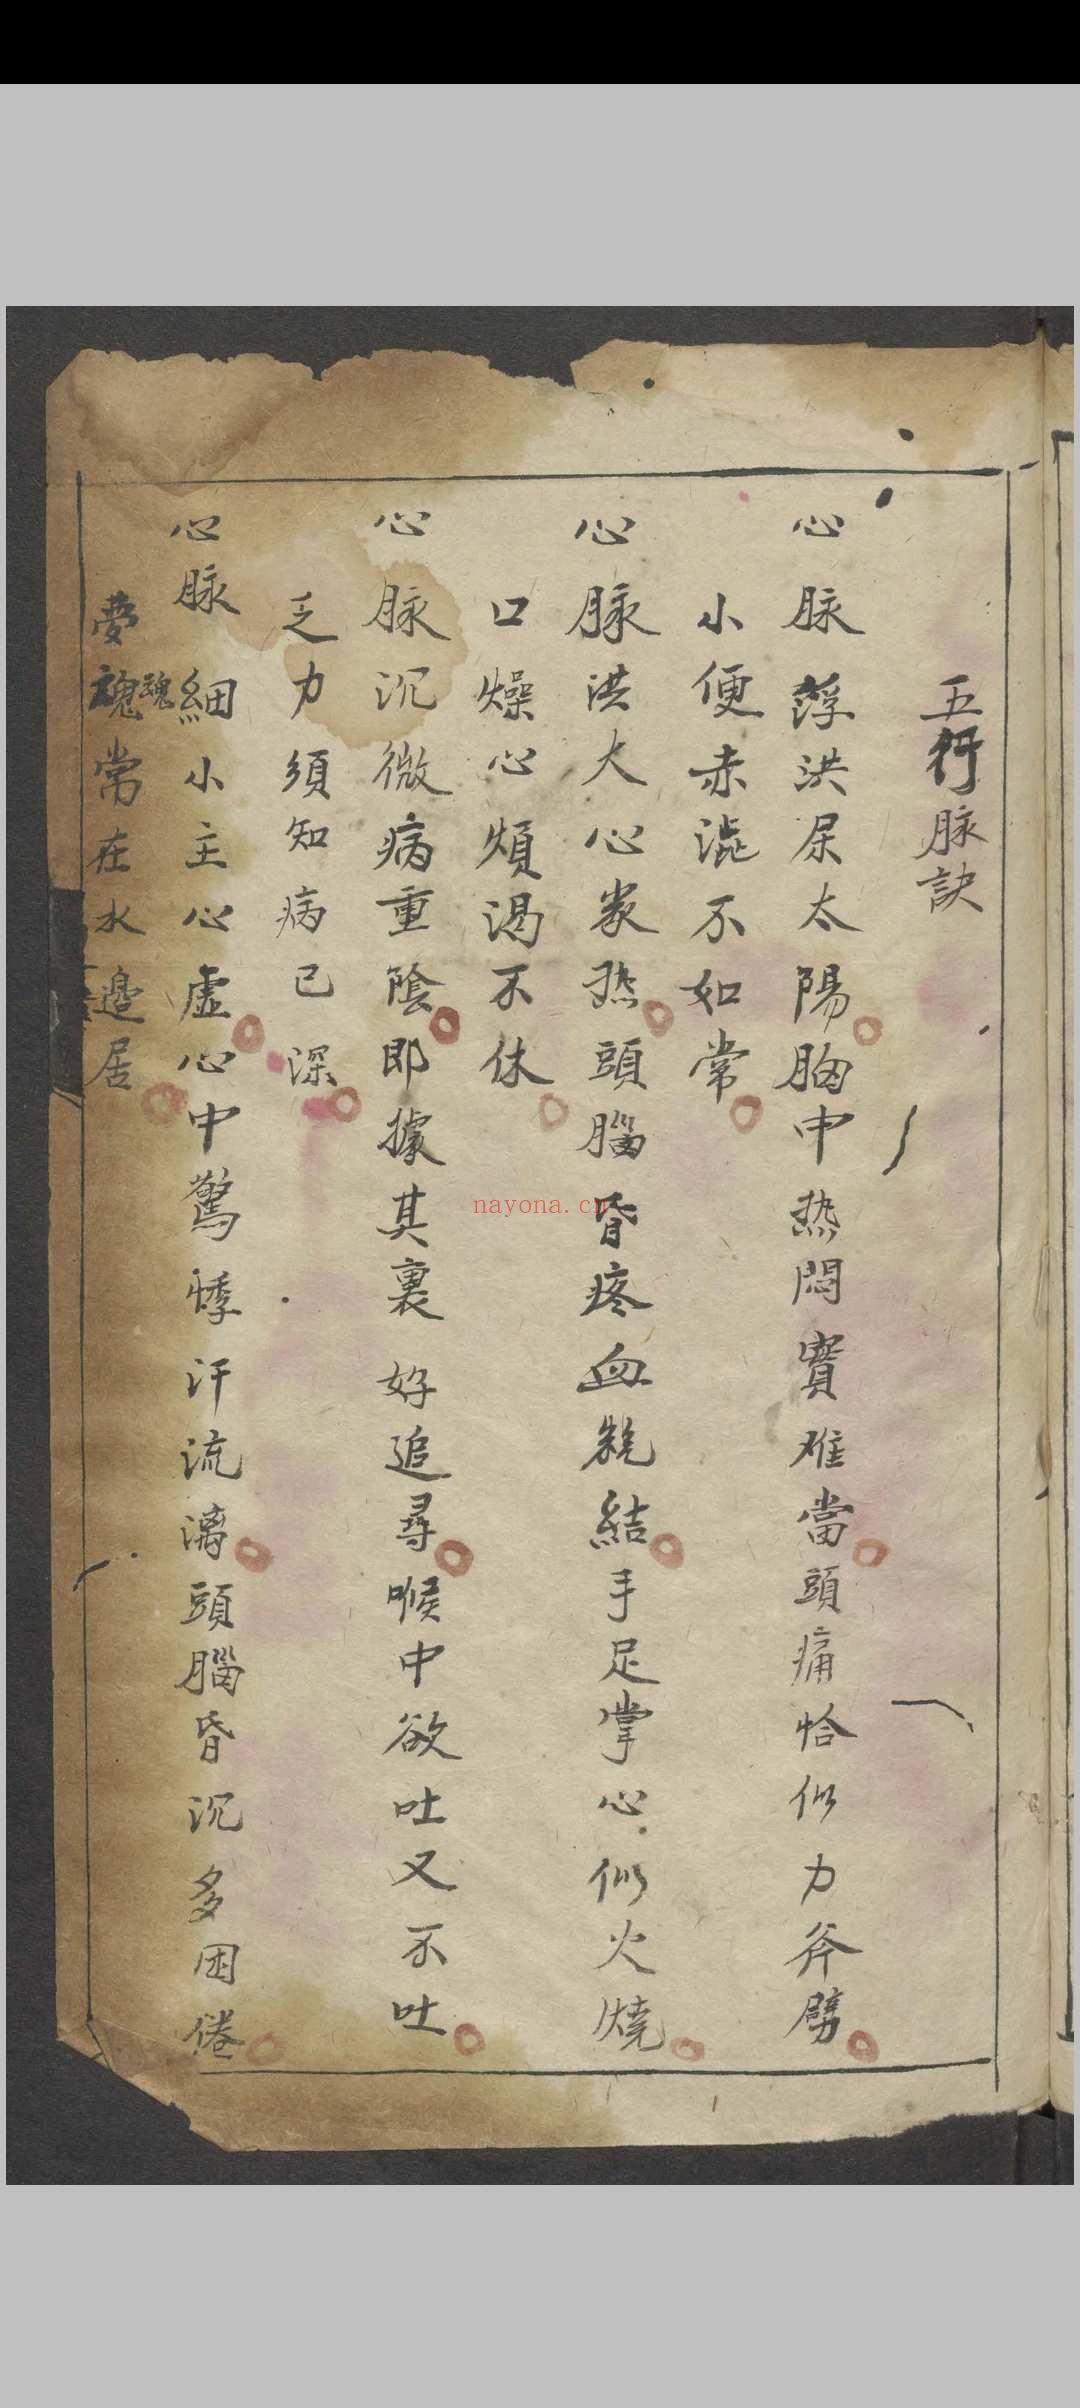 五行脉訣
心脉浮洪尿太陽胸中热悶實难當頭痛恰似力斧劈
小便赤澁不如常
心脉洪大心家热頭腦昏疼血結手足掌心似火燒
口燥心煩渴不休
心脉沉微病重陰即據其裏好追尋喉中欲吐又不吐
乏力須知病已深
心脉細小主心虚心中驚悸汗流漓頭腦昏沉多困倦
夢魂常在水邊居
魂
nayona.cn